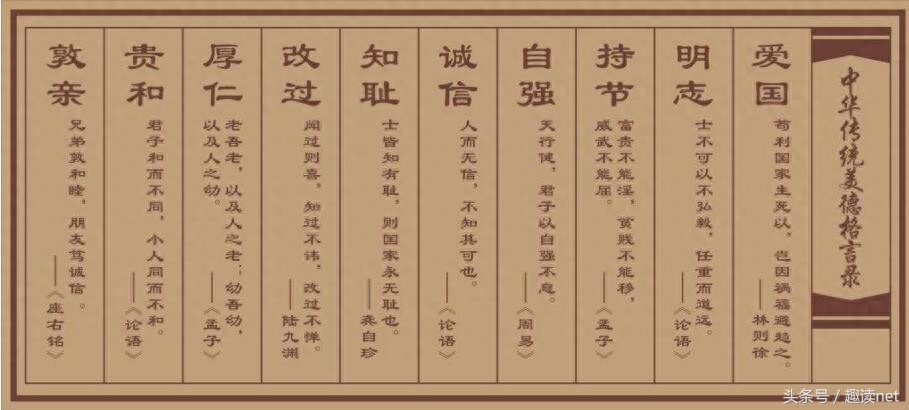 中华传统美德格言录
爱国
苟利国家生死以，岂因祸福避趋之。
——林则徐
明志
士不可以不弘毅，任重而道远。
——《论语》
持节
富贵不能淫，贫贱不能移，
威武不能屈。
——《孟子》
自强
天行健，君子以自强不息。
——《周易》
诚信
人而无信，不知其可也。
——《论语》
知耻
士皆知有耻，则国家永无耻也。
——龚自珍
改过
闻过则喜，知过不讳，改过不惮。
——陆九渊
厚仁
老吾老，以及人之老；幼吾幼，
以及人之幼。
——《孟子》
贵和
君子和而不同，小人同而不和。
——《论语》
敦亲
兄弟敦和睦，朋友笃诚信。
——《座右铭》
头条号 / 趣读net